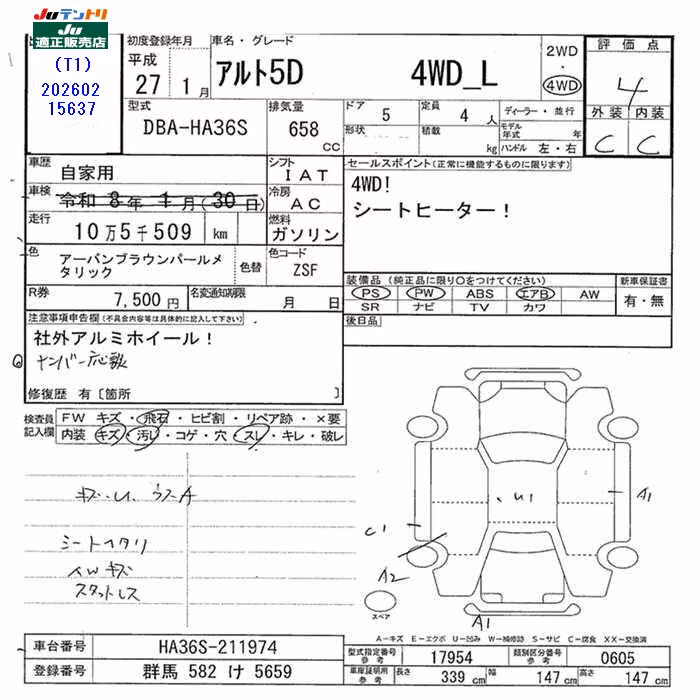 Juテントリ
Ju
適正販売店
(T1)
202602
15637
初度登録年月
平成
27年 1月
車名・グレード
アルト5D 4WD_L
2WD
・
4WD
評価点
4
外装 内装
C C
型式
DBA-HA36S
排気量
658 CC
ドア 5
形状
定員 4 人
積載 kg
ディーラー・並行
モデル年式 年
ハンドル 左・右
車歴 自家用
車検 令和 8年 1月(30日)
走行 10万5千509 km
シフト IAT
冷房 AC
燃料 ガソリン
セールスポイント(正常に機能するものに限ります)
4WD!
シートヒーター!
色
アーバンブラウンパールメタリック
色替
色コード
ZSF
R券 7,500円
名変通知期限 月 日
装備品(純正品に限り○をつけてください)
PS PW ABS エアB AW
SR ナビ TV カワ
新車保証書
有・無
後日品
注意事項申告欄(不具合内容等は具体的に記入して下さい)
社外アルミホイール!
ナンバー応談
修復歴 有〔箇所 〕
検査員記入欄
FW キズ・飛石・ヒビ割・リペア跡・×要
内装 キズ・汚レ・コゲ・穴・スレ・キレ・破レ
キズ・U
シートヘタリ
AWキズ
スタットレス
U1
A1
C1
A2
A1
スペア
A-キズ E-エクボ U-凹み W-補修跡 S-サビ C-腐食 XX-交換済
車台番号 HA36S-211974
登録番号 群馬 582 け 5659
型式指定番号 参考 17954
類別区分番号 参考 0605
車庫証明用 参考
長さ 339 cm
幅 147 cm
高さ 147 cm